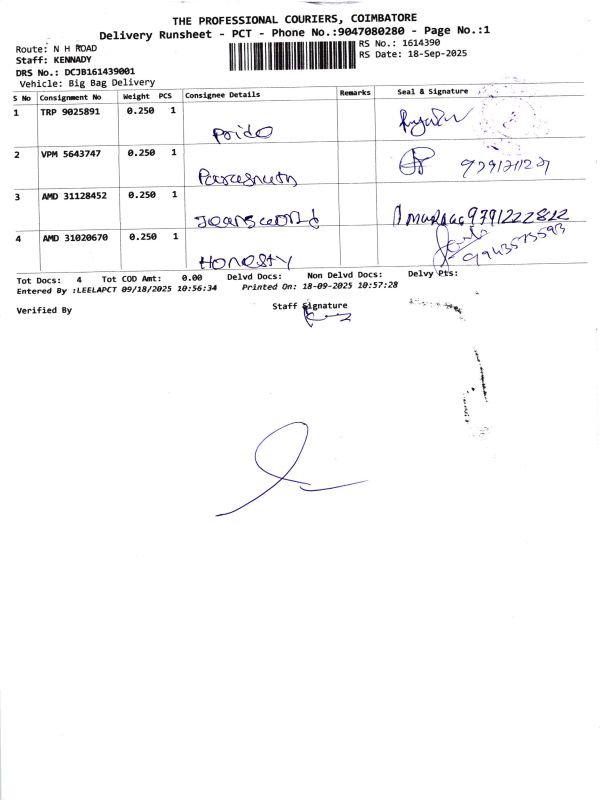 THE PROFESSIONAL COURIERS, COIMBATORE
Delivery Runsheet - PCT - Phone No.:9047080280 - Page No.:1
Route: N H ROAD
RS No.: 1614390
Staff: KENNADY
RS Date: 18-Sep-2025
DRS No.: DCJB161439001
Vehicle: Big Bag Delivery
S No Consignment No Weight PCS Consignee Details Remarks Seal & Signature
1 TRP 9025891 0.250 1
Pride
2 VPM 5643747 0.250 1
3 AMD 31128452 0.250 1
Jeansworld 9791222822
4 AMD 31020670 0.250 1
HONESTY 9943573593
Tot Docs: 4 Tot COD Amt: 0.00 Delvd Docs: Non Delvd Docs: Delvy Pts:
Entered By :LEELAPCT 09/18/2025 10:56:34 Printed On: 18-09-2025 10:57:28
Verified By
Staff Signature